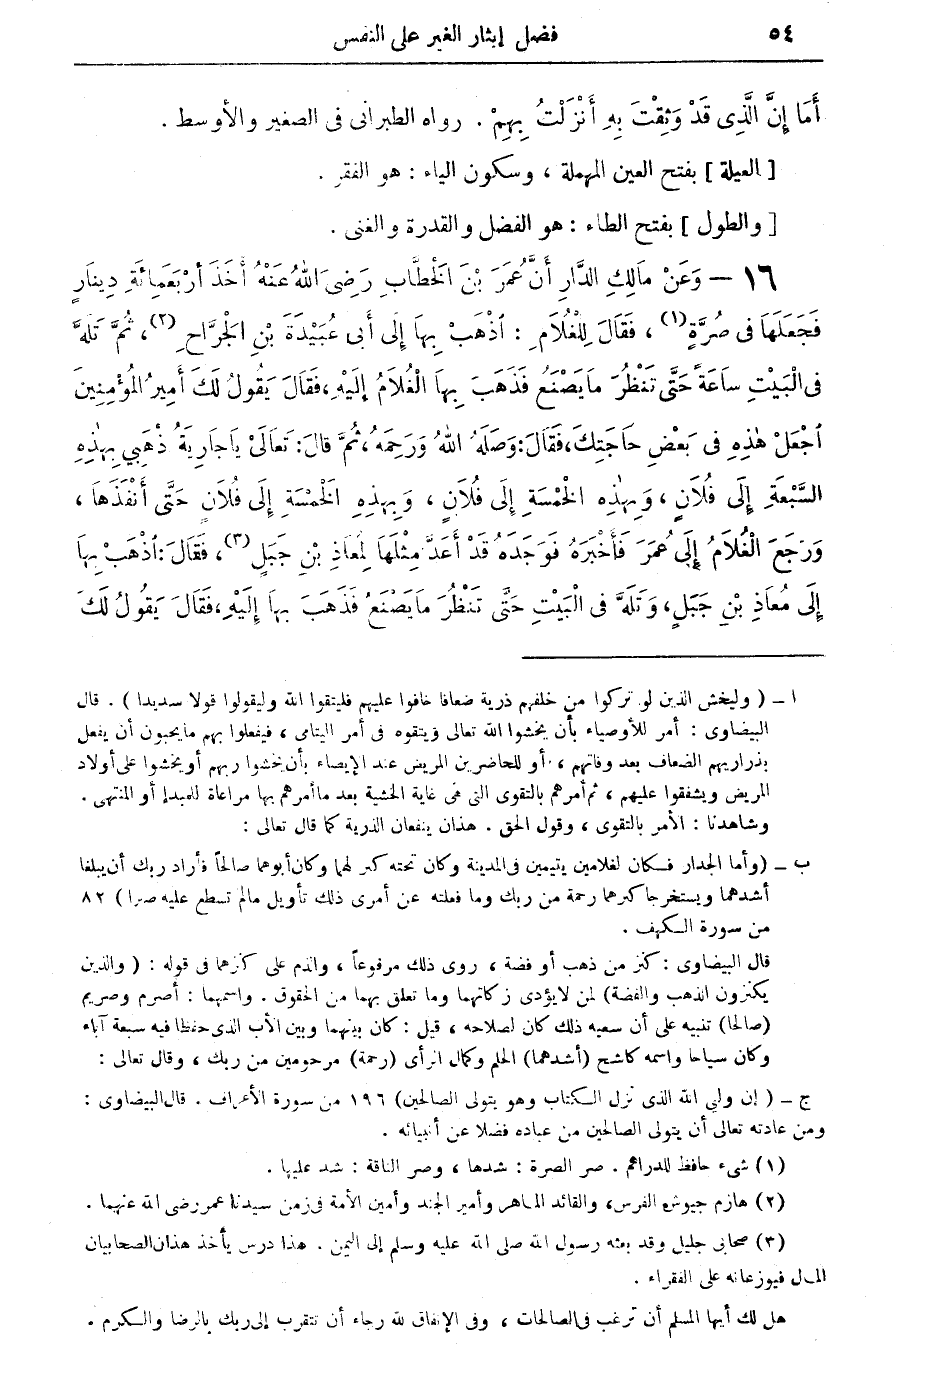 ٥٤ فضل إيثار الغير على النفس
أَمَا إِنَّ الَّذِى قَدْ وَثِقْتَ بِهِ أَنْزَلْتُ بِهِمْ . رواه الطبرانى فى الصغير والأوسط .
[ العيلة ] بفتح العين المهملة ، وسكون الياء : هو الفقر .
[ والطول ] بفتح الطاء : هو الفضل والقدرة والغنى .
١٦ — وَعَنْ مَالِكِ الدَّارِ أَنَّ عُمَرَ بْنَ الْخَطَّابِ رَضِىَ اللهُ عَنْهُ أَخَذَ أَرْبَعَمِائَةِ دِينَارٍ
فَجَعَلَهَا فى صُرَّةٍ (١) ، فَقَالَ لِلْغُلَامِ : اُذْهَبْ بِهَا إِلَى أَبى عُبَيْدَةَ بْنِ الْجَرَّاحِ (٢) ، ثُمَّ تَلَهَّ
فى الْبَيْتِ سَاعَةً حَتَّى تَنْظُرَ مَا يَصْنَعُ فَذَهَبَ بِهَا الْغُلَامُ إِلَيْهِ ، فَقَالَ يَقُولُ لَكَ أَمِيرُ الْمُؤْمِنِينَ
اُجْعَلْ هٰذِهِ فى بَعْضِ حَاجَتِكَ ، فَقَالَ : وَصَلَهُ اللهُ وَرَحِمَهُ ، ثُمَّ قَالَ : تَعَالَىْ يَاجَارِيَةُ ذْهَبِي بِهٰذِهِ
السَّبْعَةِ إِلَى فُلَانٍ ، وَبِهٰذِهِ الْخَمْسَةِ إِلَى فُلَانٍ ، وَبِهذِهِ الْخَمْسَةِ إِلَى فُلَانٍ حَتَّى أَنْفَذَهَا ،
وَرَجَعَ الْغُلَامُ إِلَى عُمَرَ فَأَخْبَرَهُ فَوَجَدَهُ قَدْ أَعَدَّ مِثْلَهَا لِمُعَاذِ بْنِ جَبَلٍ (٣) ، فَقَالَ : اُذْهَبْ بِهَا
إِلَى مُعَاذِ بْنِ جَبَلٍ ، وَتَلَهَّ فى الْبَيْتِ حَتَّى تَنْظُرَ مَا يَصْنَعُ فَذَهَبَ بِهَا إِلَيْهِ ، فَقَالَ يَقُولُ لَكَ
ا ـ ( وليخش الذين لو تركوا من خلفهم ذرية ضعافا خافوا عليهم فليتقوا الله وليقولوا قولا سديدا ) . قال
البيضاوى : أمر للأوصياء بأن يخشوا الله تعالى ويتقوه فى أمر اليتامى ، فيفعلوا بهم مايحبون أن يفعل
بذراريهم الضعاف بعد وفاتهم ، أو للحاضرين المريض عند الإيصاء بأن يخشوا ربهم أو يخشوا على أولاد
المريض ويشفقوا عليهم ، ثم أمرهم بالتقوى التى هى غاية الخشية بعد ماأمرهم بها مراعاة للمبدإ أو المنتهى .
وشاهدنا : الأمر بالتقوى ، وقول الحق . هذان ينفعان الذرية كما قال تعالى :
ب ـ (وأما الجدار فكان لغلامين يتيمين فى المدينة وكان تحته كنز لهما وكان أبوهما صالحاً فأراد ربك أن يبلغا
أشدهما ويستخرجا كنزهما رحمة من ربك وما فعلته عن أمرى ذلك تأويل مالم تسطع عليه صبرا ) ٨٢
من سورة الكهف .
قال البيضاوى : كنز من ذهب أو فضة ، روى ذلك مرفوعاً ، والذم على كنزهما فى قوله : ( والذين
يكنزون الذهب والفضة) لمن لايؤدى زكاتهما وما تعلق بهما من الحقوق . واسمهما : أصرم وصريم
(صالحا) تنبيه على أن سعيه ذلك كان لصلاحه ، قيل : كان بينهما وبين الأب الذى حفظا فيه سبعة آباء
وكان سياحا واسمه كاشح (أشدهما) الحلم وكمال الرأى (رحمة) مرحومين من ربك ، وقال تعالى :
ج ـ ( إن وليى الله الذى نزل الكتاب وهو يتولى الصالحين) ١٩٦ من سورة الأعراف . قال البيضاوى :
ومن عادته تعالى أن يتولى الصالحين من عباده فضلا عن أنبيائه .
(١) شىء حافظ للدراهم . صر الصرة : شدها ، وصر الناقة : شد عليها .
(٢) هازم جيوش الفرس، والقائد الماهر وأمير الجند وأمين الأمة فى زمن سيدنا عمر رضى الله عنهما .
(٣) صحابى جليل وقد بعثه رسول الله صلى الله عليه وسلم إلى اليمن . هذا درس يأخذ هذان الصحابيان
المال فيوزعانه على الفقراء .
هل لك أيها المسلم أن ترغب فى الصالحات ، وفى الإنفاق لله رجاء أن تتقرب إلى ربك بالرضا والكرم .